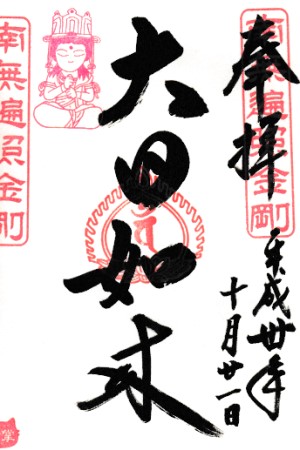 奉拝
南無遍照金剛
平成卅年
十月廿一日
大日如来
南無遍照金剛
掌